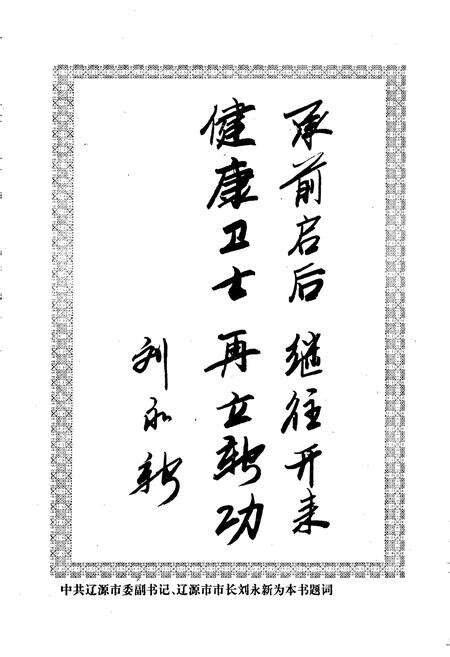 承前启后 继往开来
健康卫士 再立新功
刘永新
中共辽源市委副书记、辽源市市长刘永新为本书题词